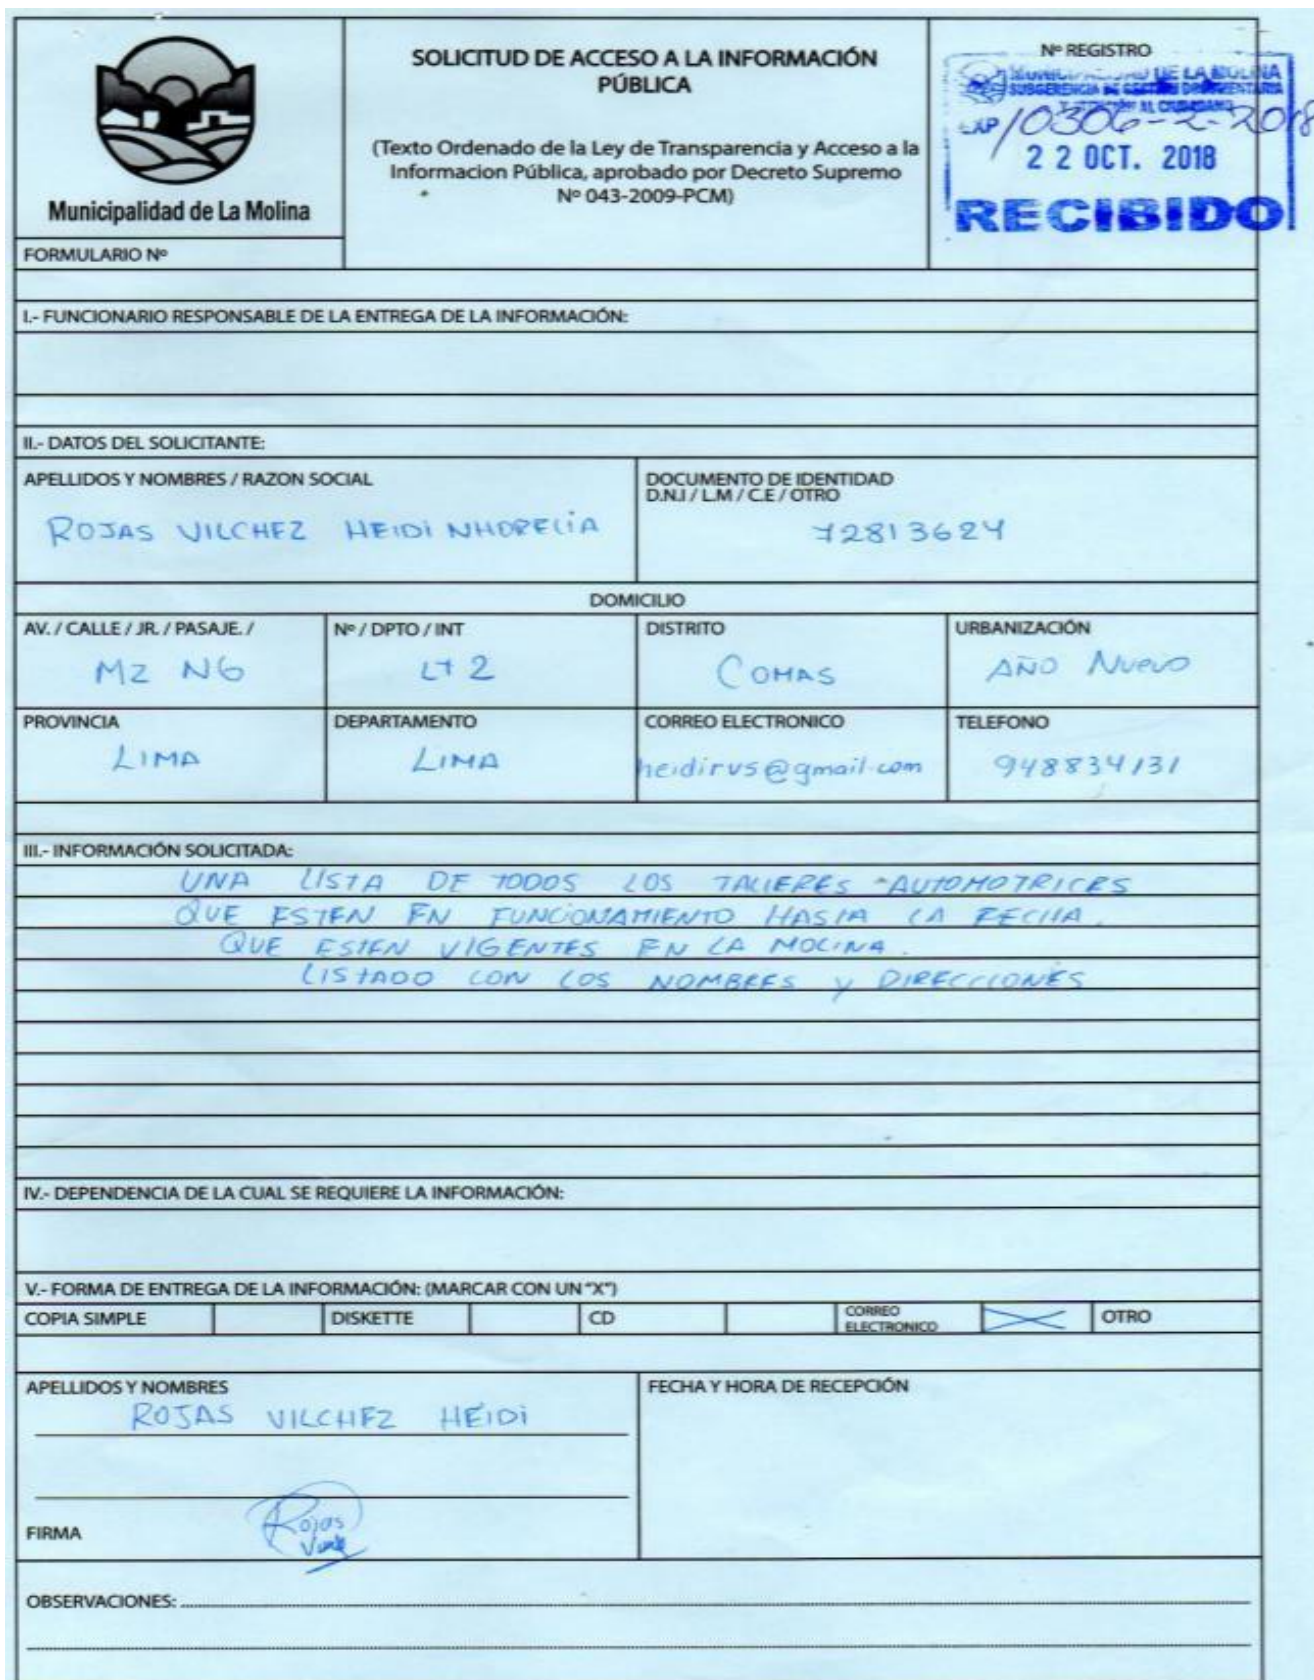 Municipalidad de La Molina
FORMULARIO Nº
SOLICITUD DE ACCESO A LA INFORMACIÓN
PÚBLICA
(Texto Ordenado de la Ley de Transparencia y Acceso a la
Informacion Pública, aprobado por Decreto Supremo
Nº 043-2009-PCM)
Nº REGISTRO
MUNICIPALIDAD DE LA MOLINA
SUBGERENCIA DE GESTIÓN DOCUMENTARIA
Y ATENCIÓN AL CIUDADANO
EXP 10306-2-2018
22 OCT. 2018
RECIBIDO
I.- FUNCIONARIO RESPONSABLE DE LA ENTREGA DE LA INFORMACIÓN:
II.- DATOS DEL SOLICITANTE:
APELLIDOS Y NOMBRES / RAZON SOCIAL
ROJAS VILCHEZ HEIDI NHORELIA
DOCUMENTO DE IDENTIDAD
D.N.I / L.M / C.E / OTRO
72813624
DOMICILIO
AV. / CALLE / JR. / PASAJE. /
MZ N6
Nº / DPTO / INT
LT 2
DISTRITO
COMAS
URBANIZACIÓN
AÑO NUEVO
PROVINCIA
LIMA
DEPARTAMENTO
LIMA
CORREO ELECTRONICO
heidirvs@gmail.com
TELEFONO
948834131
III.- INFORMACIÓN SOLICITADA:
UNA LISTA DE TODOS LOS TALLERES AUTOMOTRICES
QUE ESTEN EN FUNCIONAMIENTO HASTA LA FECHA.
QUE ESTEN VIGENTES EN LA MOLINA.
LISTADO CON LOS NOMBRES Y DIRECCIONES
IV.- DEPENDENCIA DE LA CUAL SE REQUIERE LA INFORMACIÓN:
V.- FORMA DE ENTREGA DE LA INFORMACIÓN: (MARCAR CON UN "X")
COPIA SIMPLE DISKETTE CD CORREO ELECTRONICO X OTRO
APELLIDOS Y NOMBRES
ROJAS VILCHEZ HEIDI
FECHA Y HORA DE RECEPCIÓN
FIRMA
Rojas
OBSERVACIONES: